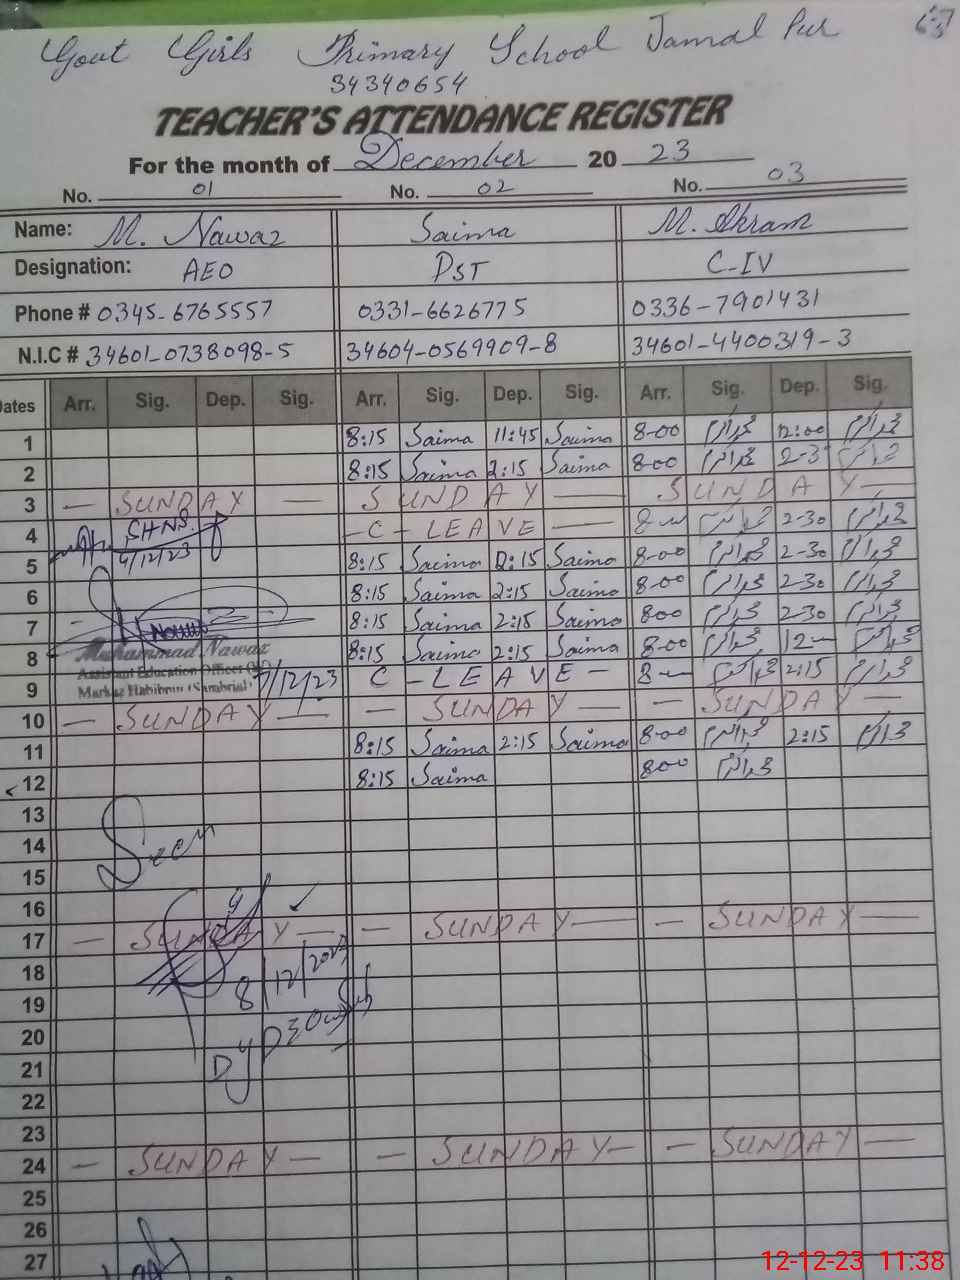 Govt Girls Primary School Jamal Pur
34340654
TEACHER'S ATTENDANCE REGISTER
For the month of December 20 23
No. 01 No. 02 No. 03
Name: M. Nawaz Saima M. Akram
Designation: AEO PST C-IV
Phone # 0345-6765557 0331-6626775 0336-7901431
N.I.C # 34601-0738098-5 34604-0569909-8 34601-4400319-3
Dates Arr. Sig. Dep. Sig. Arr. Sig. Dep. Sig. Arr. Sig. Dep. Sig.
1 8:15 Saima 11:45 Saima 8-00 محمد اکرم 12:00 محمد اکرم
2 8:15 Saima 2:15 Saima 8-00 محمد اکرم 2-3 محمد اکرم
3 — SUNDAY — SUNDAY — SUNDAY —
4 SHNS. - C - LEAVE — 8 محمد اکرم 2-30 محمد اکرم
4/12/23
5 8:15 Saima 2:15 Saima 8-00 محمد اکرم 2-30 محمد اکرم
6 8:15 Saima 2:15 Saima 8-00 محمد اکرم 2-30 محمد اکرم
7 8:15 Saima 2:15 Saima 800 محمد اکرم 2-30 محمد اکرم
8 Muhammad Nawaz 8:15 Saima 2:15 Saima 8-00 محمد اکرم 12 محمد اکرم
Assistant Education Officer
9 Markaz 7/12/23 C - LEAVE - 8 محمد اکرم 2:15 محمد اکرم
10 — SUNDAY — — SUNDAY — — SUNDAY —
11 8:15 Saima 2:15 Saima 8-00 محمد اکرم 2:15 محمد اکرم
12 8:15 Saima 800 محمد اکرم
13
14 Seen
15
16
17 — SUNDAY — — SUNDAY — — SUNDAY —
18
19 8/12/2023
20
21 Dy DEO
22
23
24 — SUNDAY — — SUNDAY — — SUNDAY —
25
26
27
12-12-23 11:38